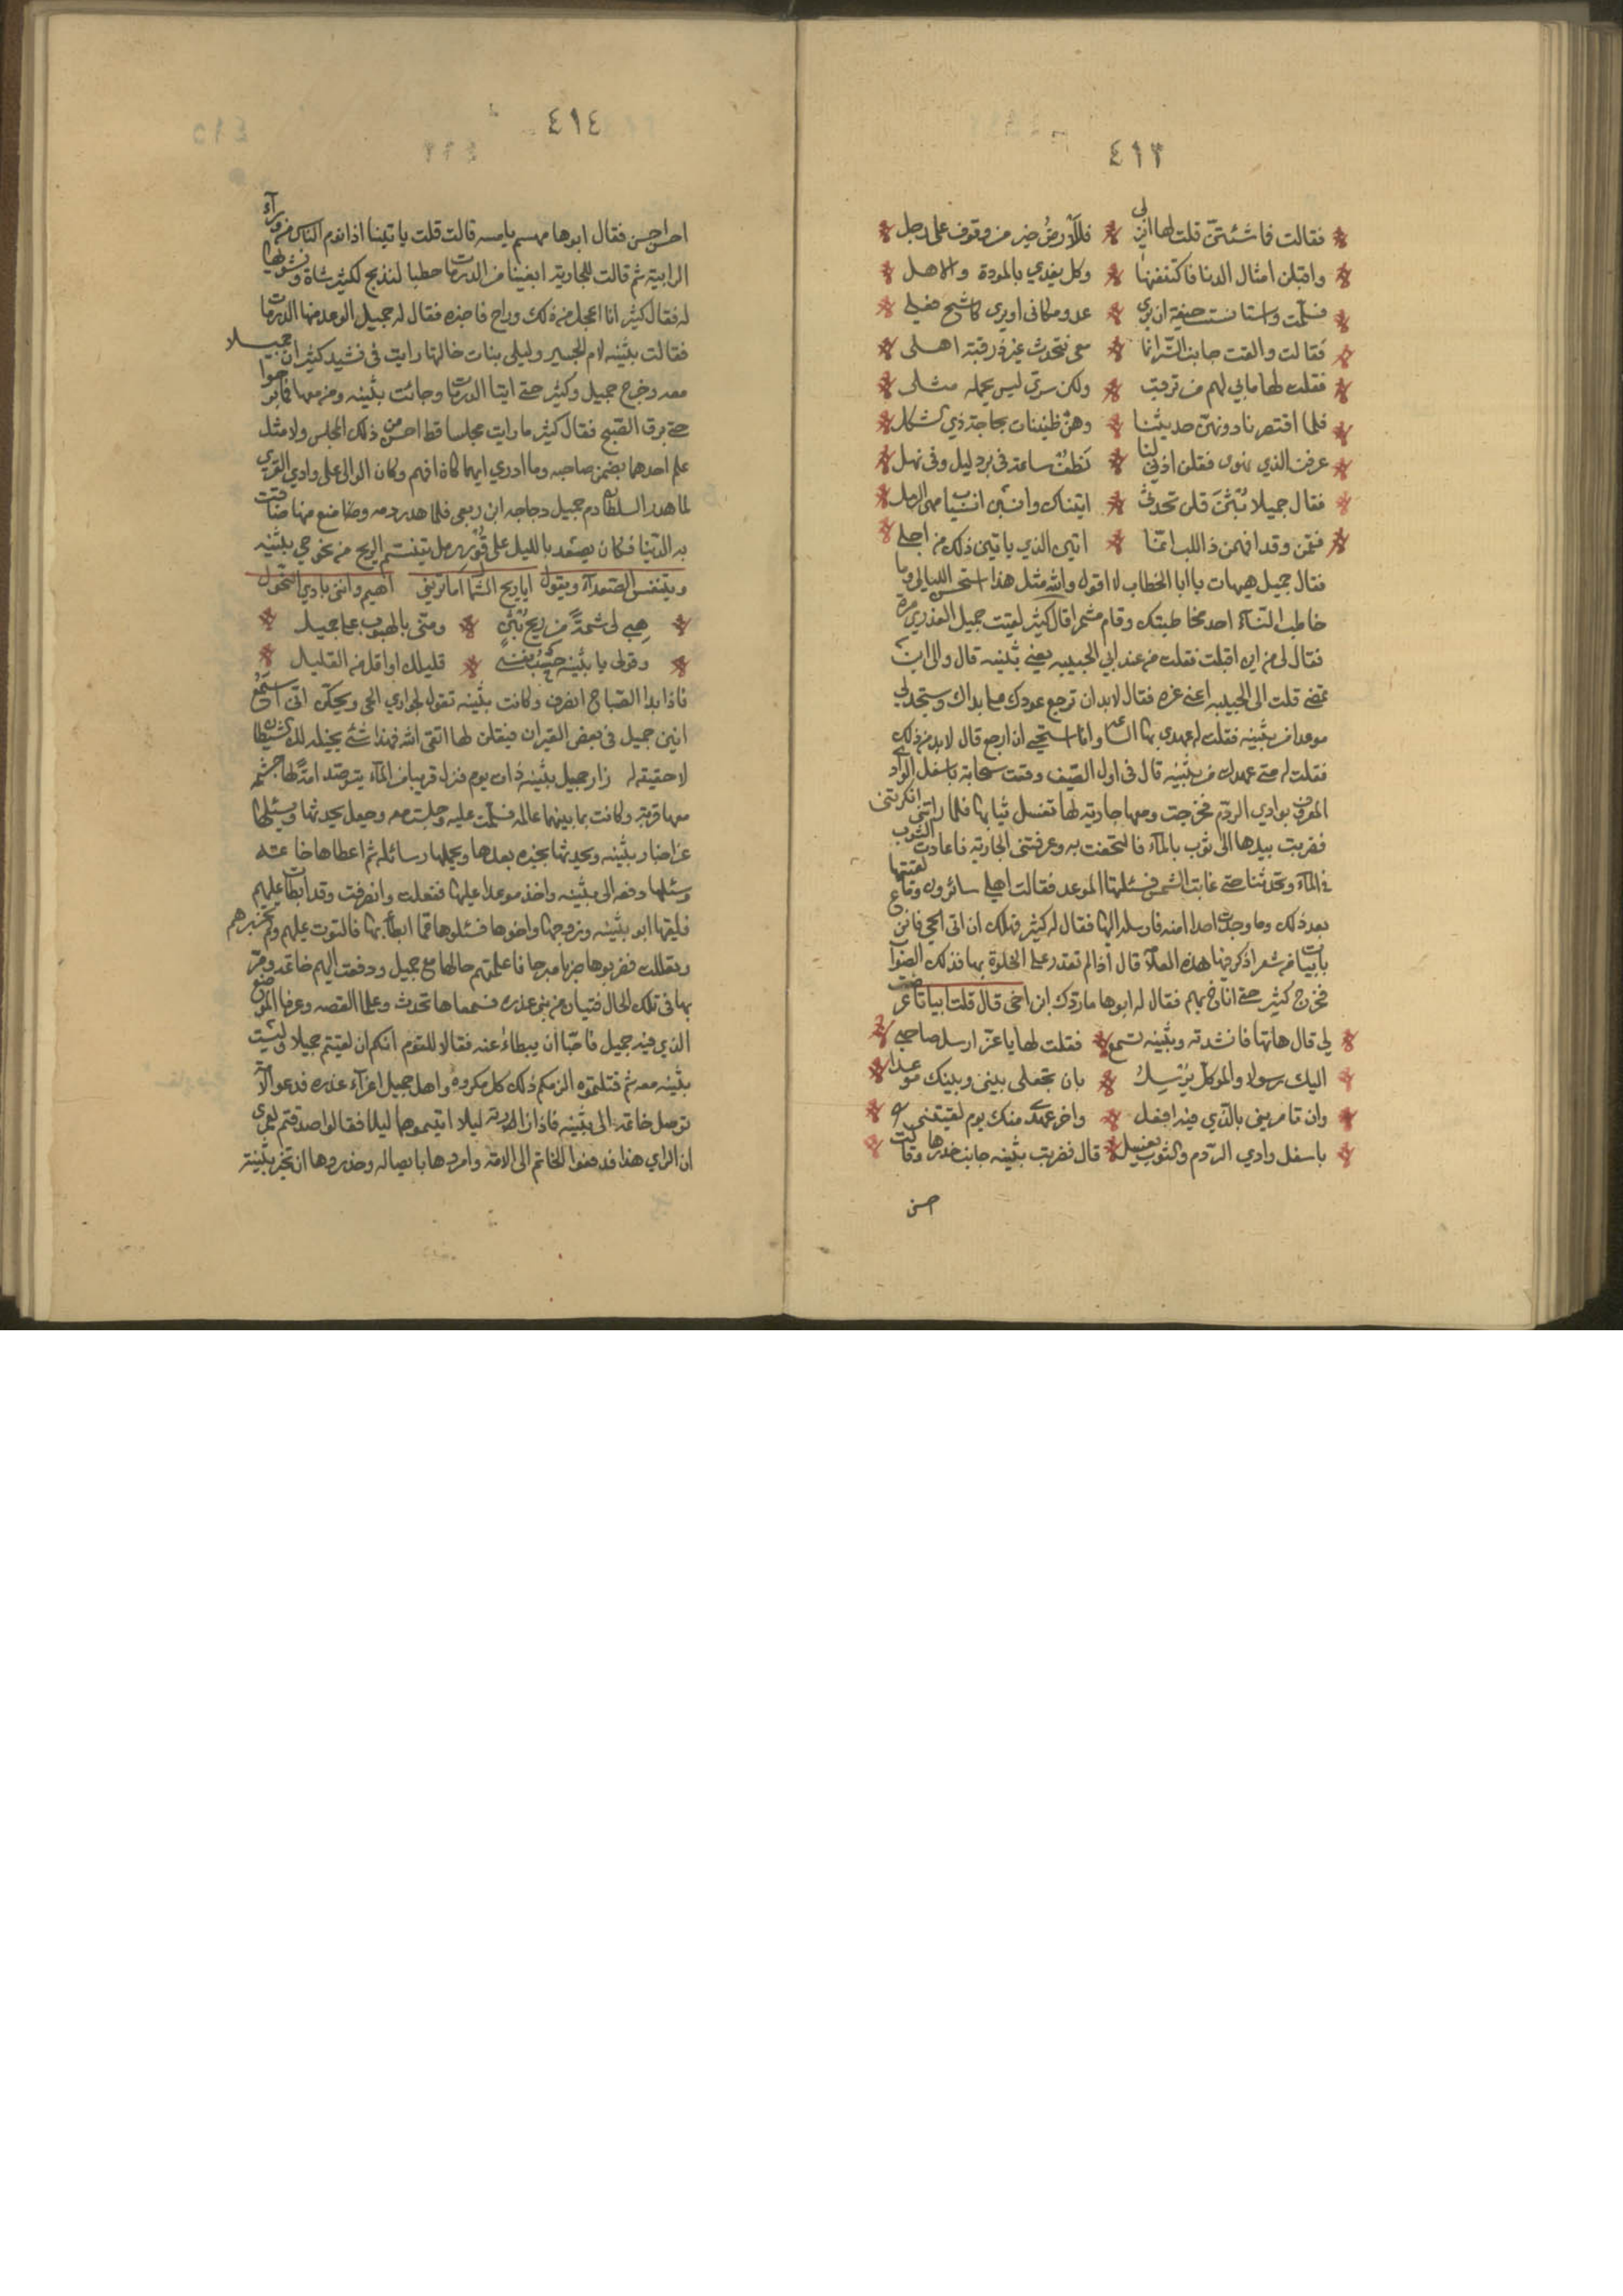 ٤١٣
فقالت فما شئتن قلت لها انزلي * فللارض خير من وقوف على رحل
واقبلن امثال الدما فاكتنفنها * وكل يفدي بالمودة والاهل
فسلمت واستانست خيفة ان يرى * عدو مكاني او يرى كاشح فعلي
فقالت والقت جانب الستر انما * معي فتحدث غير ذي رقبة اهلي
فقلت لها ما بي لهم من ترقب * ولكن سري ليس يحمله مثلي
فلما اقتصرنا دونهن حديثنا * وهن طبيبات بحاجة ذي شكل
عرفن الذي نهوى فقلن اذني لنا * نطف ساعة في برد ليل وفي نهل
فقال جميلا بثن قلن تحدثي * اتيناك وانسبن انسياب مهى الرمل
فقمن وقد افهمن ذا اللب انما * اتين الذي ياتين ذلك من اجلي
فقال جميل هيهات يا ابا الخطاب لا اقول والله مثل هذا استحسن الليالي وما
خاطب النساء احد مخاطبتك وقام مشمرا قال كثير لقيت جميل العذري مرة
فقال لي من اين اقبلت فقلت من عند ابي الحبيبه يعني بثينه قال والى اين
تمضي قلت الى الحبيبه اعني عزه فقال لا بد ان ترجع عودك على بداك وتستجد لي
موعدا من بثينه فقلت له عهدي بها الساعه وانا استحيي ان ارجع قال لا بد من ذلك
فقلت له متى عهدك من بثينه قال في اول الصيف وقعت سحابة باسفل الوادي
المعروف بوادي الدوم فخرجت ومعها جارية لها تغسل ثيابها فلما راتني انكرتني
فضربت بيدها الى ثوب بالماء فالتحفت به وعرفتني الجارية فاعادت الثوب
في الماء وتحدثنا حتى غابت الشمس فسئلتها الموعد فقالت اهلي سائرون وما لقيتها
بعد ذلك وما وجدت احدا امنه فارسله اليها فقال له كثير فهل لك ان اتي الحي فانزع
بابيات من شعر اذكر فيها هذه العلامة قال اذا لم تقدر على الخلوة بها فذلك الصواب
فخرج كثير حتى اناخ بهم فقال له ابوها ما ردك ابن اخي قال قلت ابياتا عرضت
لي قال هاتها فانشدته وبثينه تسمع * فقلت لها يا عز ارسل صاحبي
اليك رسولا والموكل يرسل * بان تجعلي بيني وبينك موعدا
وان تامريني بالذي فيه افعل * واخر عهدك منك يوم لقيتني
باسفل وادي الدوم والثوب يغسل * قال فضربت بثينه جانب خدرها وقالت
احسن
٤١٤
احسن احسن فقال ابوها مهيم يا بثينه قالت قلت ياتينا اذا نوم الناس من وراء
الرابية ثم قالت للجارية ابغينا من الدومات حطبا لنذبح لكثير شاة ونشويها
له فقال كثير انا اعجل من ذلك وراح فاخبره فقال له جميل الموعد منها الدومات
فقالت بثينه لام الحسير وليلى بنات خالتها رايت في نشيد كثير ان جميلا
معه وخرج جميل وكثير حتى اتيا الدومات وجائت بثينه ومن معها فما برحوا
حتى برق الصبح فقال كثير ما رايت مجلسا قط احسن من ذلك المجلس ولا مثل
علم احدهما بضمير صاحبه وما ادري ايهما كان افهم وكان الوالي على وادي القرى
لما هدر السلطان دم جميل دجاجه ابن ربعي فلما هدر دمه وضاع ضع منها ضاقت
به الدنيا فكان يصعد بالليل على قور رمل يتنسم الريح من نحو حي بثينه
ويتنفس الصعداء ويقول ايا ريح الشمال اما تريني اهيم وانني بادي النحول
* هبي لي شمة من ريح بثن * ومني بالهبوب على جميل *
* وقولي يا بثينه حسب نفسي * قليلك او اقل من القليل *
فاذا بدا الصباح انصرف وكانت بثينه تقول لجواري الحي ويحكن اني استمع
انين جميل في بعض القيران فيقلن لها اتقي الله فهذا شئ يخيله لك شيطان
لا حقيقه له زار جميل بثينه ذات يوم فنزل قريبا من الماء يترصد امة لها حبشية
معها قربة وكانت بما بينهما عالمه فسلمت عليه وجلست معه وجعل يحدثها ويسئلها
عن اخبار بثينه ويحدثها بخبره بعدها ويحملها رسائله ثم اعطاها خاتمه
وسئلها دفعه الى بثينه واخذ موعدا عليها ففعلت وانصرفت وقد ابطات عليهم
فلقيها ابو بثينه وزوجها واخوها فسئلوها عما ابطأ بها فالتوت عليهم ولم تخبرهم
وتعللت فضربوها ضربا مبرحا فاعلمتهم حالها مع جميل ودفعت اليهم خاتمه ومر
بها في تلك الحال فتيان من بني عذره فسمعاها تحدث وعلما القصه وعرفا الموضع
الذي فيه جميل فاحبا ان يبطاء عنه فقالا للقوم انكم ان لقيتم جميلا وليست
بثينه معه ثم قتلتموه الزمكم ذلك كل مكروه واهل جميل اعزاء عذره فدعوا الامة
توصل خاتمه الى بثينه فاذا زارته ليلا اتيتموهما ليلا فقالوا صدقتم لعمري
ان الراي هذا فدفعوا الخاتم الى الامة وامروها بايصاله وحذروها ان تخبر بثينة